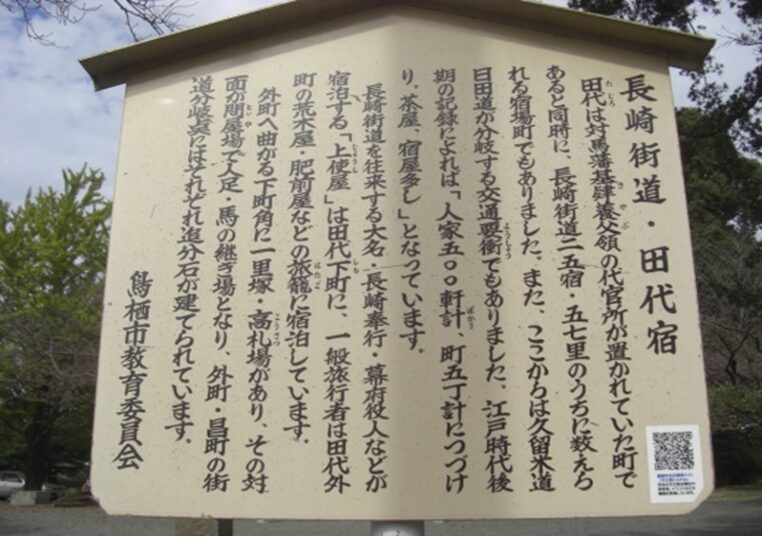 長崎街道・田代宿
田代は対馬藩基肄養父領の代官所が置かれていた町で
あると同時に、長崎街道二五宿・五七里のうちに数えら
れる宿場町でもありました。また、ここからは久留米道
日田道が分岐する交通要衝でもありました。江戸時代後
期の記録によれば「人家五〇〇軒計、町五丁計につづけ
り、茶屋、宿屋多し」となっています。
長崎街道を往来する大名・長崎奉行・幕府役人などが
宿泊する「上使屋」は田代下町に、一般旅行者は田代外
町の荒木屋・肥前屋などの旅籠に宿泊しています。
外町へ曲がる下町角に一里塚・高札場があり、その対
面が問屋場で人足・馬の継ぎ場となり、外町・昌町の街
道分岐点にはそれぞれ追分石が建てられています。
鳥栖市教育委員会